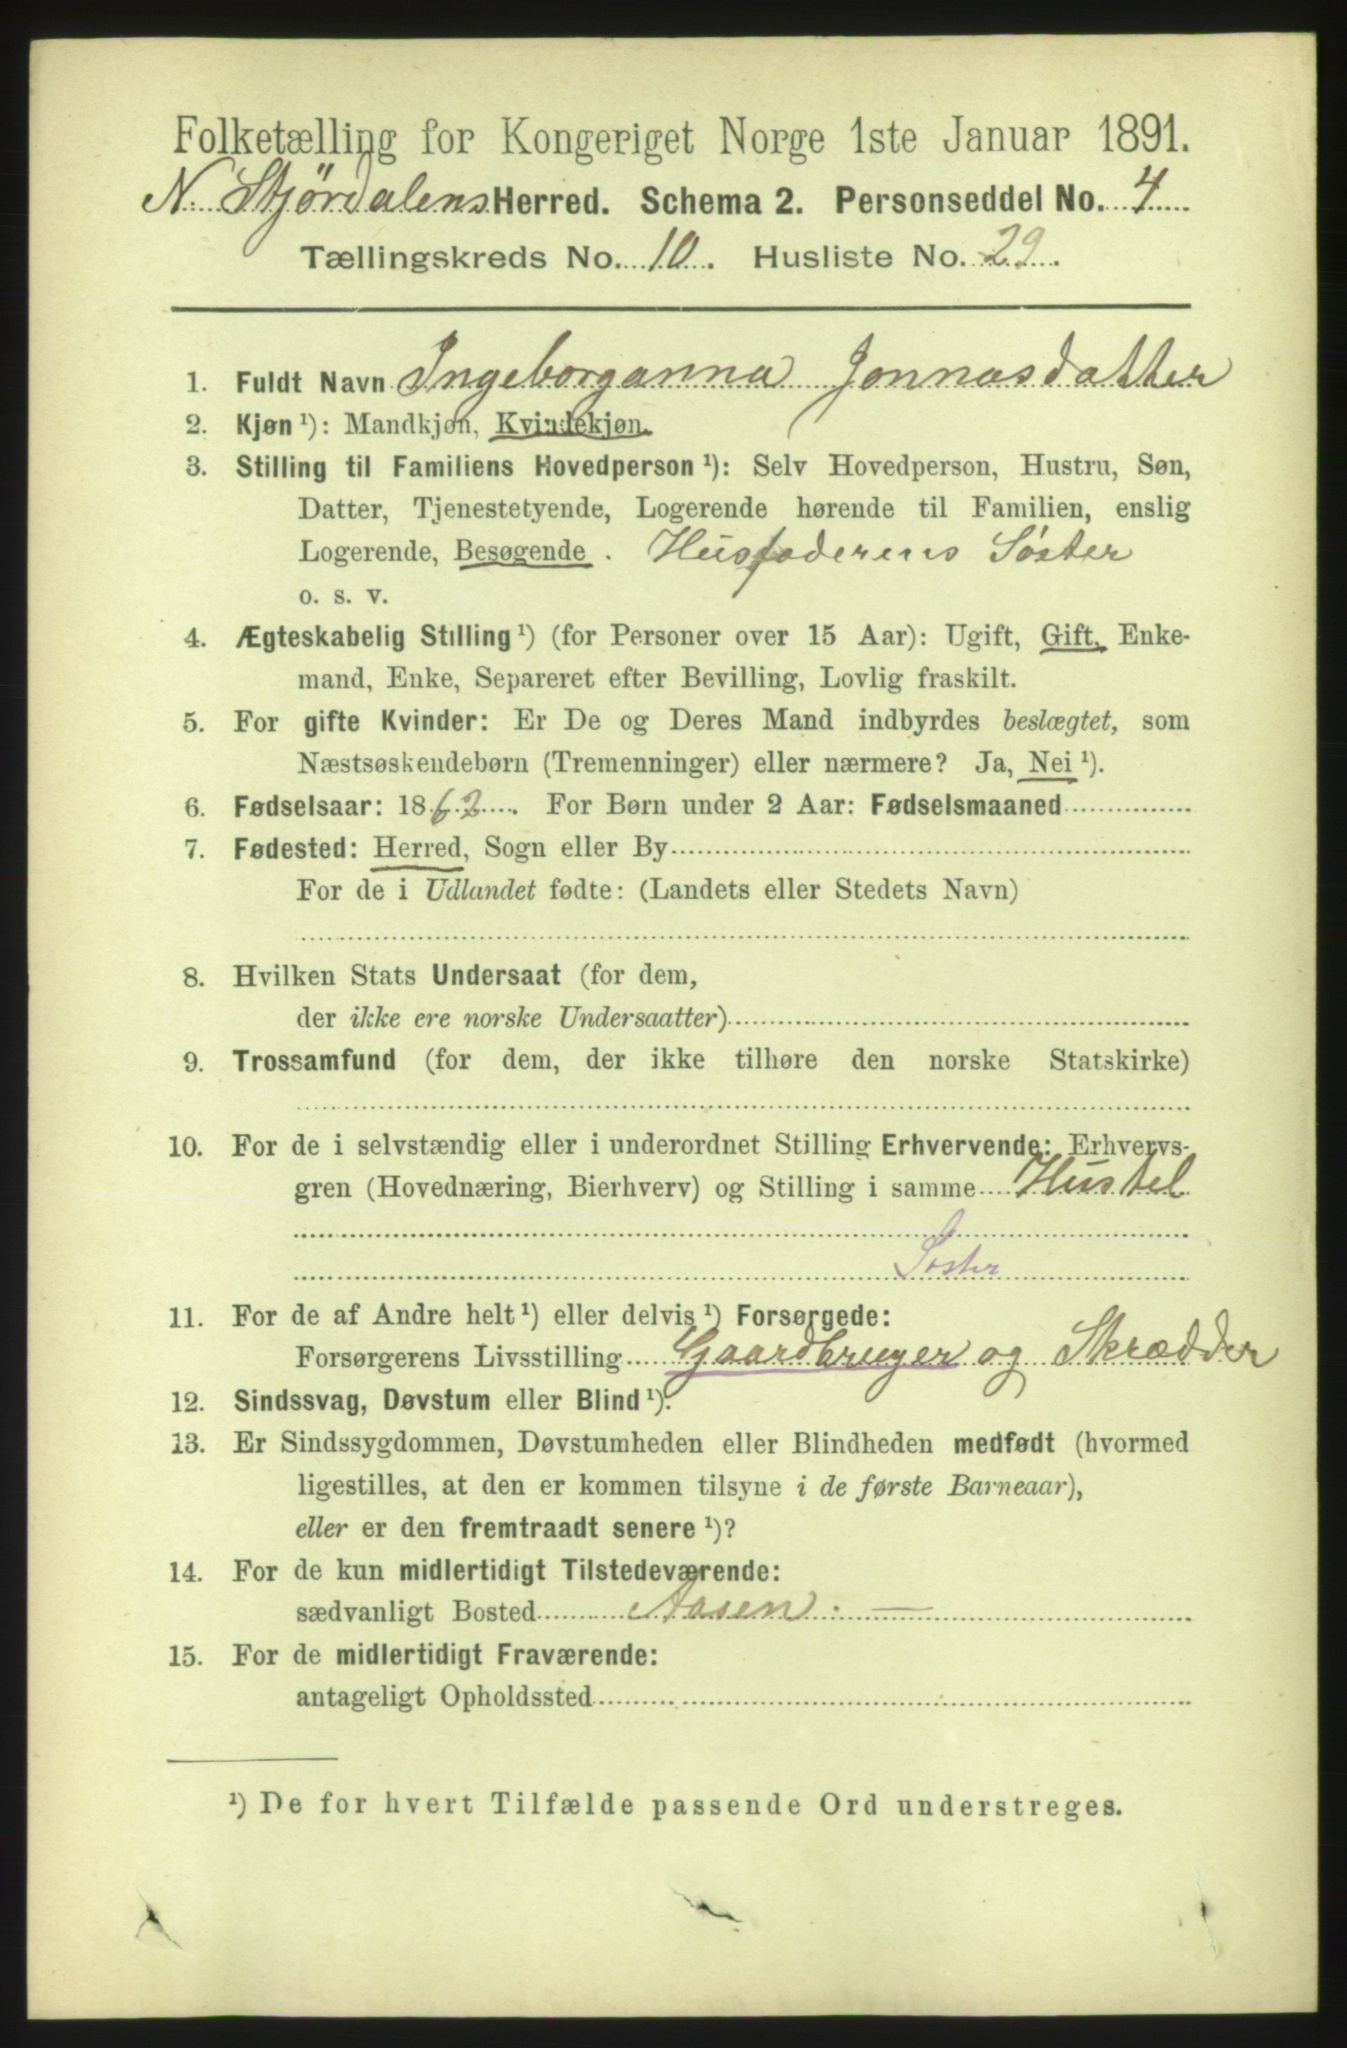 Folketælling for Kongeriget Norge 1ste Januar 1891.
N. Stjørdalens Herred. Schema 2. Personseddel No. 4
Tællingskreds No. 10. Husliste No. 29.
1. Fuldt Navn Ingeborganna Jonnasdatter
2. Kjøn ¹): Mandkjøn, Kvindekjøn.
3. Stilling til Familiens Hovedperson ¹): Selv Hovedperson, Hustru, Søn,
Datter, Tjenestetyende, Logerende hørende til Familien, enslig
Logerende, Besøgende. Husfaderens Søster
o. s. v.
4. Ægteskabelig Stilling ¹) (for Personer over 15 Aar): Ugift, Gift, Enke-
mand, Enke, Separeret efter Bevilling, Lovlig fraskilt.
5. For gifte Kvinder: Er De og Deres Mand indbyrdes beslægtet, som
Næstsøskendebørn (Tremenninger) eller nærmere? Ja, Nei ¹).
6. Fødselsaar: 1862. For Børn under 2 Aar: Fødselsmaaned
7. Fødested: Herred, Sogn eller By
For de i Udlandet fødte: (Landets eller Stedets Navn)
8. Hvilken Stats Undersaat (for dem,
der ikke ere norske Undersaatter)
9. Trossamfund (for dem, der ikke tilhøre den norske Statskirke)
10. For de i selvstændig eller i underordnet Stilling Erhvervende: Erhvervs-
gren (Hovednæring, Bierhverv) og Stilling i samme Hustel
Søster
11. For de af Andre helt ¹) eller delvis ¹) Forsørgede:
Forsørgerens Livsstilling Gaardbruger og Skrædder
12. Sindssvag, Døvstum eller Blind ¹).
13. Er Sindssygdommen, Døvstumheden eller Blindheden medfødt (hvormed
ligestilles, at den er kommen tilsyne i de første Barneaar),
eller er den fremtraadt senere ¹)?
14. For de kun midlertidigt Tilstedeværende:
sædvanligt Bosted Aasen. —
15. For de midlertidigt Fraværende:
antageligt Opholdssted
¹) De for hvert Tilfælde passende Ord understreges.